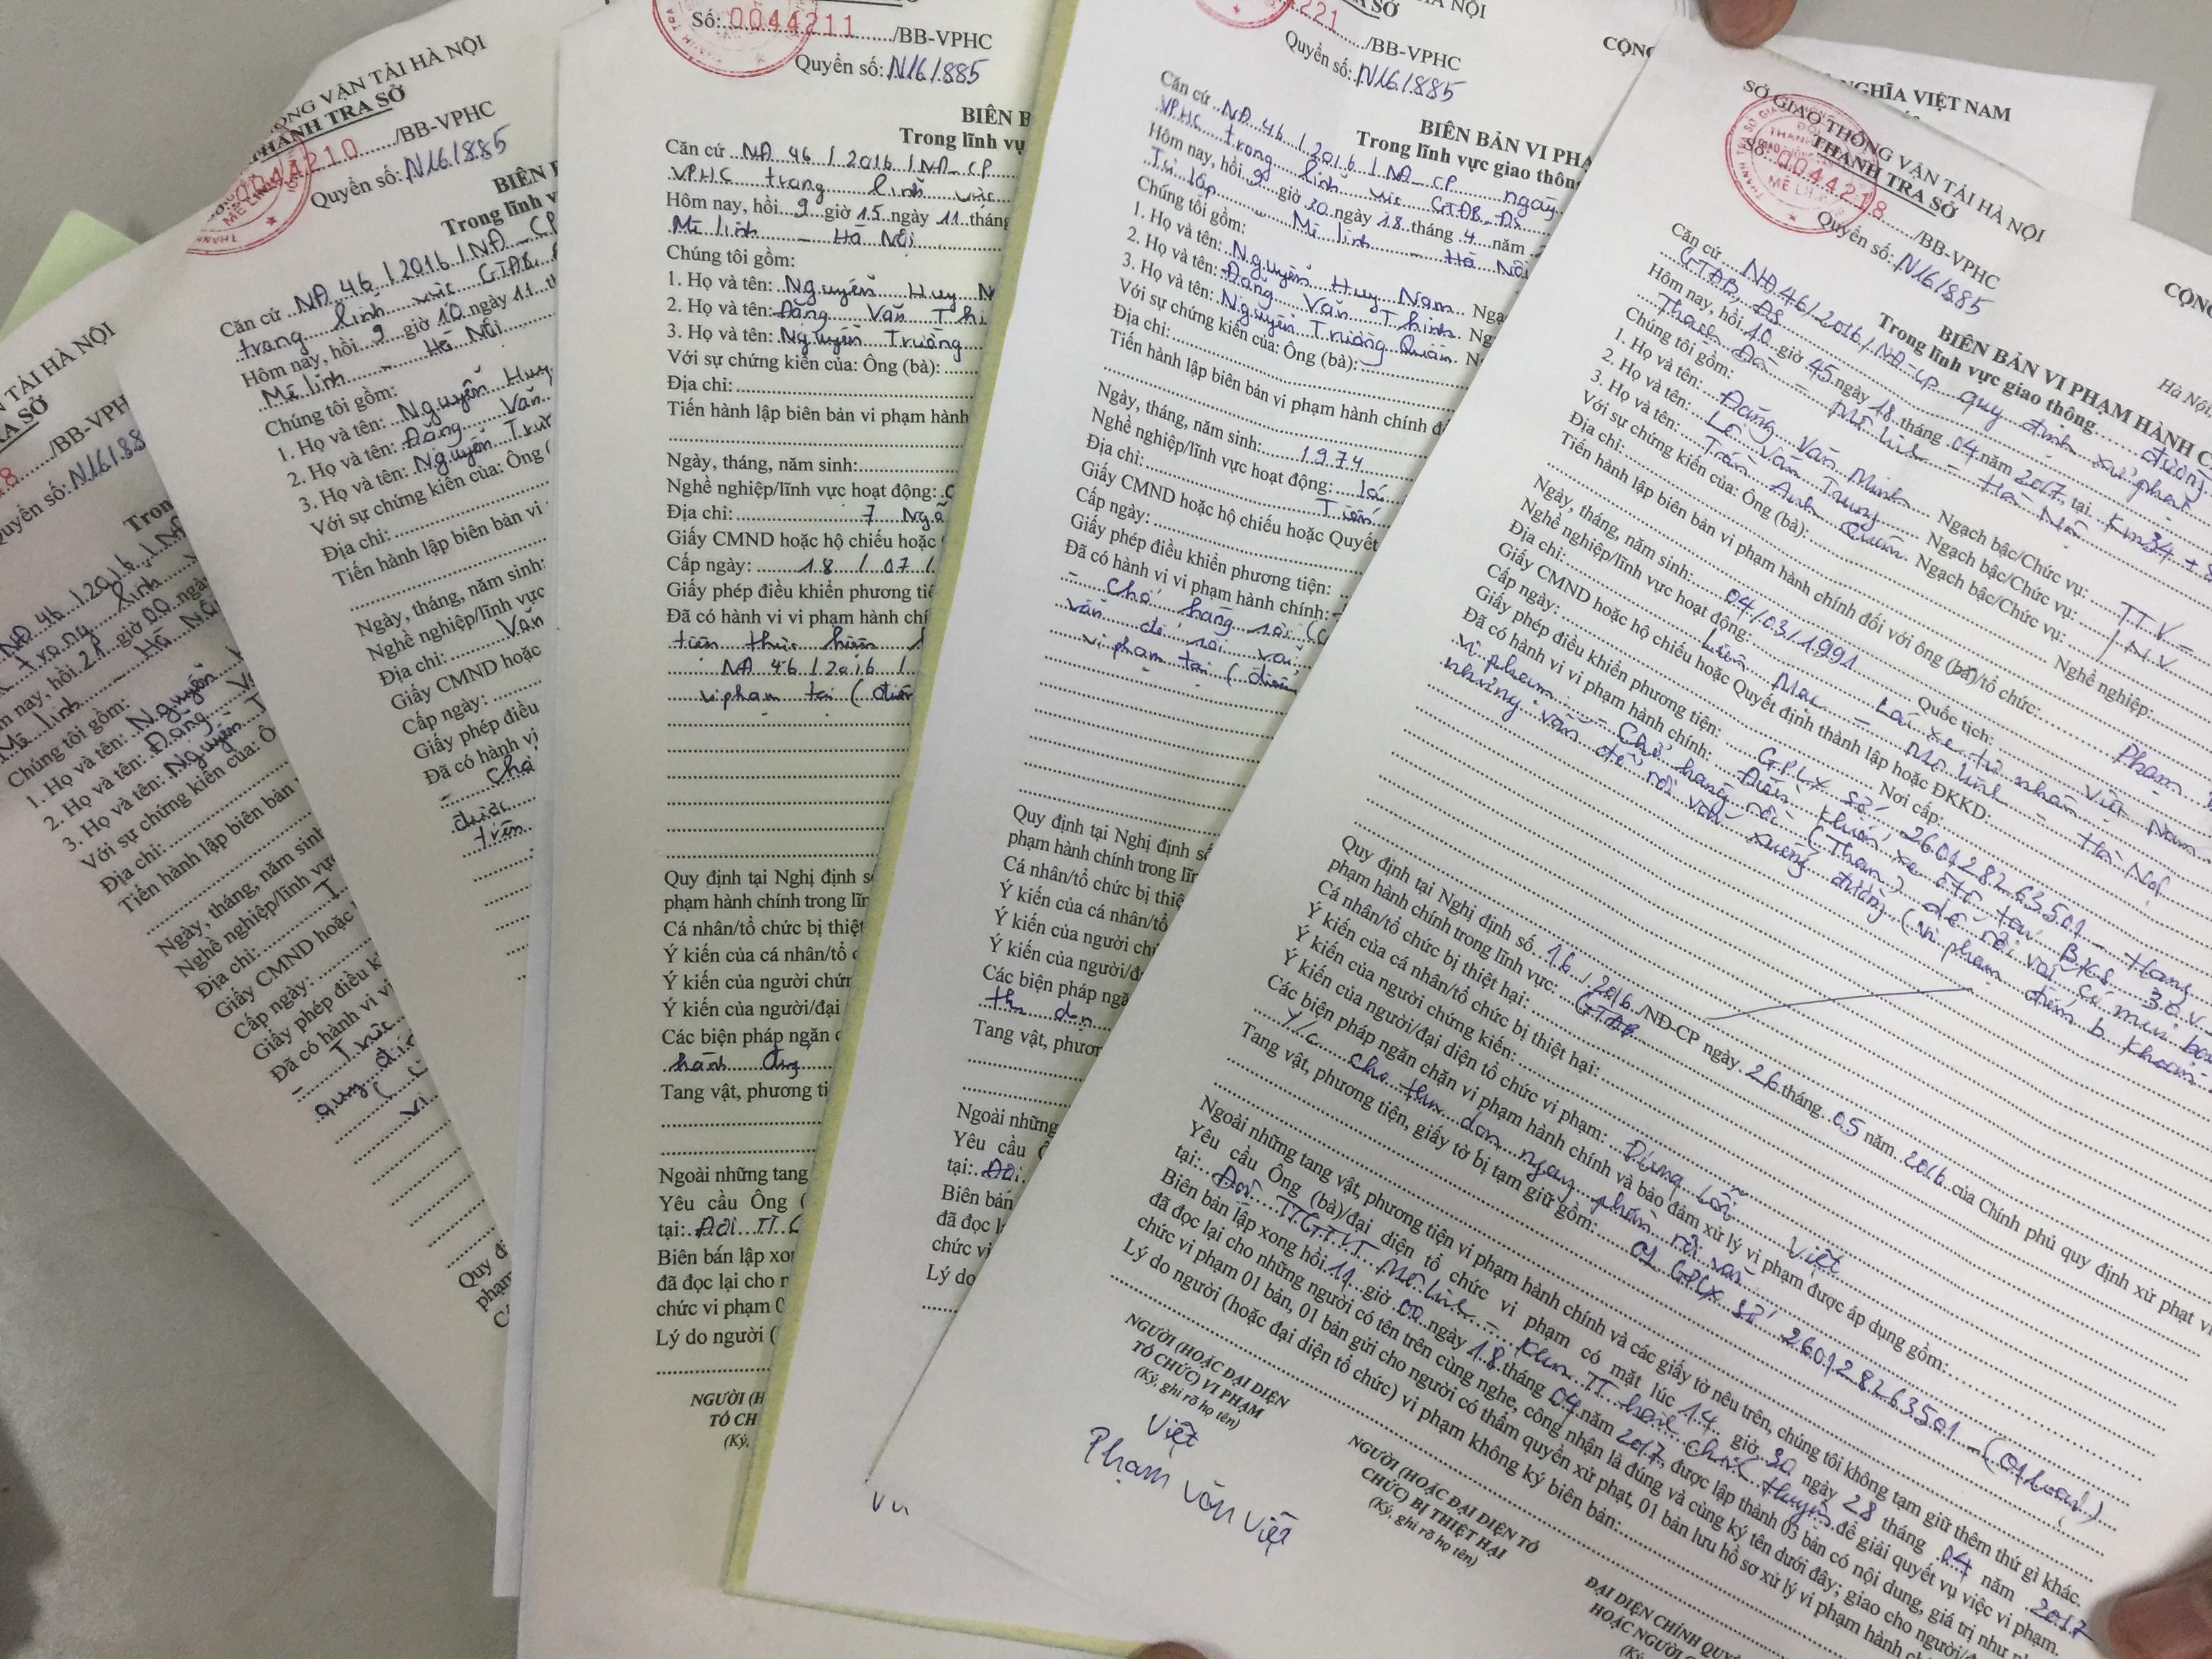 TẢI HÀ NỘI
RA SỞ
/BB-VPH
Quyển số: N16.1.88
Tron
NĐ 46 / 2016 / NĐ
trong lĩnh
nay, hồi 21 giờ 00 ngày
Mê linh Hà Nội
Chúng tôi gồm:
1. Họ và tên: Nguyễn
2. Họ và tên: Đặng
3. Họ và tên: Nguyễn T
Với sự chứng kiến của: Ô
Địa chỉ:
Tiến hành lập biên bản
Ngày, tháng, năm sinh
Nghề nghiệp/lĩnh vực
Địa chỉ:
Giấy CMND hoặc
Cấp ngày:
Giấy phép điều k
Đã có hành vi vi
quy đị
vi
Quy đ
phạm
ÔNG VẬN TẢI HÀ NỘI
THANH TRA SỞ
0044210 /BB-VPHC
Quyển số: N16.1.885
BIÊN
Trong lĩnh v
Căn cứ NĐ 46 / 2016 / NĐ - CP
trong lĩnh vực GTĐB
Hôm nay, hồi 9 giờ 10 ngày 11 th
Mê linh - Hà Nội
Chúng tôi gồm:
1. Họ và tên: Nguyễn Huy
2. Họ và tên: Đặng Văn
3. Họ và tên: Nguyễn Trư
Với sự chứng kiến của: Ông (
Địa chỉ:
Tiến hành lập biên bản vi
Ngày, tháng, năm sinh:
Nghề nghiệp/lĩnh vực
Địa chỉ: Văn
Giấy CMND hoặc
Cấp ngày:
Giấy phép điều
Đã có hành vi
- chở
được
trên
Số: 0044211 /BB-VPHC
Quyển số: N16.1.885
BIÊN B
Trong lĩnh vự
Căn cứ NĐ 46 / 2016 / NĐ - CP
VPHC trong lĩnh vực
Hôm nay, hồi 9 giờ 15 ngày 11 tháng
Mê linh - Hà Nội
Chúng tôi gồm:
1. Họ và tên: Nguyễn Huy N
2. Họ và tên: Đặng Văn Thị
3. Họ và tên: Nguyễn Trường
Với sự chứng kiến của: Ông (bà):
Địa chỉ:
Tiến hành lập biên bản vi phạm hành
Ngày, tháng, năm sinh:
Nghề nghiệp/lĩnh vực hoạt động:
Địa chỉ: 7 Ngõ
Giấy CMND hoặc hộ chiếu hoặc
Cấp ngày: 18 / 07 /
Giấy phép điều khiển phương tiệ
Đã có hành vi vi phạm hành chí
tiện thực hiện
NĐ 46 / 2016 /
vi phạm tại ( điểm
Quy định tại Nghị định số
phạm hành chính trong lĩn
Cá nhân/tổ chức bị thiệt
Ý kiến của cá nhân/tổ c
Ý kiến của người chứn
Ý kiến của người/đại
Các biện pháp ngăn c
hành
Tang vật, phương ti
Ngoài những tang
Yêu cầu Ông (
tại: Đội TT
Biên bản lập xo
đã đọc lại cho n
chức vi phạm 0
Lý do người (
NGƯỜI (H
TỔ CH
(Ký,
221 /BB-VPHC
RA SỞ
HÀ NỘI
Quyển số: N16.1.885
BIÊN BẢN VI PHẠ
Trong lĩnh vực giao thông
Căn cứ NĐ 46 / 2016 / NĐ - CP ngày
VPHC trong lĩnh vực GTĐB, ĐS
Hôm nay, hồi 9 giờ 20 ngày 18 tháng 4 năm
Tự lập Mê linh - Hà Nội
Chúng tôi gồm:
1. Họ và tên: Nguyễn Huy Nam Ngạ
2. Họ và tên: Đặng Văn Thịnh Ng
3. Họ và tên: Nguyễn Trường Quân N
Với sự chứng kiến của: Ông (bà):
Địa chỉ:
Tiến hành lập biên bản vi phạm hành chính đ
Ngày, tháng, năm sinh: 1974
Nghề nghiệp/lĩnh vực hoạt động: lái
Địa chỉ: Tiến
Giấy CMND hoặc hộ chiếu hoặc Quyết
Cấp ngày:
Giấy phép điều khiển phương tiện:
Đã có hành vi vi phạm hành chính:
- chở hàng rời (
vấn đề rơi vãi
vi phạm tại ( điểm
Quy định tại Nghị định số
phạm hành chính trong lĩn
Cá nhân/tổ chức bị thiệ
Ý kiến của cá nhân/tổ
Ý kiến của người ch
Ý kiến của người/đ
Các biện pháp ngă
thu dọn
Tang vật, phươn
Ngoài những
Yêu cầu
tại: Đội
Biên bản
đã đọc l
chức vi
Lý do
CỘNG
NGHĨA VIỆT NAM
SỞ GIAO THÔNG VẬN TẢI HÀ NỘI
THANH TRA SỞ
Số: 0044218 /BB-VPHC
Quyển số: N16.1.885
CỘNG
Hà Nội,
BIÊN BẢN VI PHẠM HÀNH C
Trong lĩnh vực giao thông đường
Căn cứ NĐ 46/2016/NĐ-CP quy định xử phạt
GTĐB, ĐS
Hôm nay, hồi 10 giờ 45 ngày 18 tháng 04 năm 2017, tại Km 34 +
Thanh - Mê linh - Hà Nội
Chúng tôi gồm:
1. Họ và tên: Đặng Văn Minh Ngạch bậc/Chức vụ: TTV
2. Họ và tên: Lê Văn Trung Ngạch bậc/Chức vụ: NV
3. Họ và tên: Trần Anh Quân Ngạch bậc/Chức vụ:
Với sự chứng kiến của: Ông (bà): Nghề nghiệp:
Địa chỉ:
Tiến hành lập biên bản vi phạm hành chính đối với ông (bà)/tổ chức: Phạm
Ngày, tháng, năm sinh: 04/03/1991 Quốc tịch: Việt Nam
Nghề nghiệp/lĩnh vực hoạt động: Lái xe tư nhân
Địa chỉ: Liên Mạc - Mê linh - Hà Nội
Giấy CMND hoặc hộ chiếu hoặc Quyết định thành lập hoặc ĐKKD:
Cấp ngày: Nơi cấp:
Giấy phép điều khiển phương tiện: GPLX số: 260128263501 - Hạng
Đã có hành vi vi phạm hành chính: Điều khiển xe ôtô tải BKS 30V
vi phạm: - Chở hàng rời (Than) để rơi vãi
những vấn đề rơi vãi xuống đường (vi phạm điểm b khoản
Quy định tại Nghị định số 46 / 2016 /NĐ-CP ngày 26 tháng 05 năm 2016 của Chính phủ quy định xử phạt vi
phạm hành chính trong lĩnh vực: GTĐB
Cá nhân/tổ chức bị thiệt hại:
Ý kiến của cá nhân/tổ chức bị thiệt hại:
Ý kiến của người chứng kiến:
Ý kiến của người/đại diện tổ chức vi phạm: Đúng lỗi Việt
Các biện pháp ngăn chặn vi phạm hành chính và bảo đảm xử lý vi phạm được áp dụng gồm:
Y/c cho thu dọn ngay phần rơi vãi
Tang vật, phương tiện, giấy tờ bị tạm giữ gồm: 01 GPLX số: 260128263501 -
Ngoài những tang vật, phương tiện vi phạm hành chính và các giấy tờ nêu trên, chúng tôi không tạm giữ thêm thứ gì khác.
Yêu cầu Ông (bà)/đại diện tổ chức vi phạm có mặt lúc 14 giờ 30 ngày 28 tháng 04 năm 2017
tại: Đội TTGTVT Mê linh - Khu TT hành chính huyện để giải quyết vụ việc vi phạm.
Biên bản lập xong hồi 11 giờ 00 ngày 18 tháng 04 năm 2017, được lập thành 03 bản có nội dung, giá trị như n
đã đọc lại cho những người có tên trên cùng nghe, công nhận là đúng và cùng ký tên dưới đây; giao cho người/
chức vi phạm 01 bản, 01 bản gửi cho người có thẩm quyền xử phạt, 01 bản lưu hồ sơ xử lý vi phạm hành ch
Lý do người (hoặc đại diện tổ chức) vi phạm không ký biên bản:
NGƯỜI (HOẶC ĐẠI DIỆN
TỔ CHỨC) VI PHẠM
(Ký, ghi rõ họ tên)
Việt
Phạm Văn Việt
NGƯỜI (HOẶC ĐẠI DIỆN TỔ
CHỨC) BỊ THIỆT HẠI
(Ký, ghi rõ họ tên)
ĐẠI DIỆN CHÍNH QUY
HOẶC NGƯỜI C
(Ký